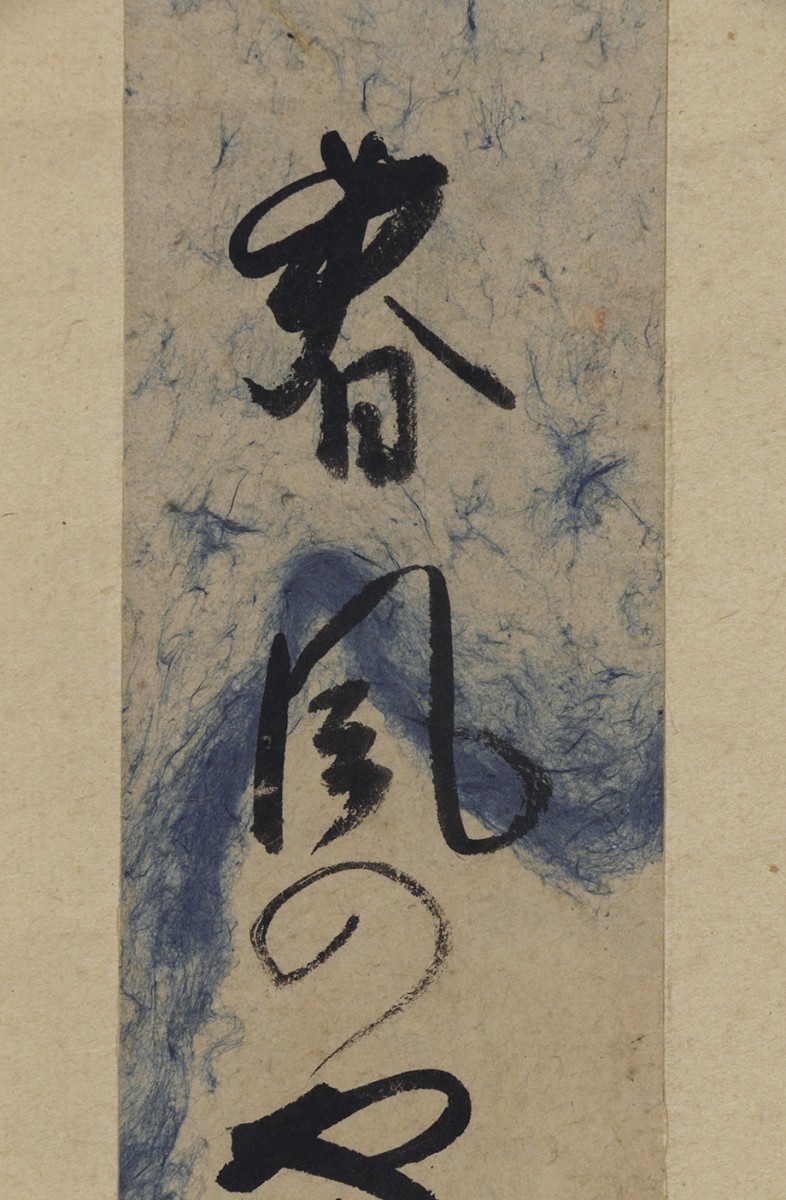 春風の